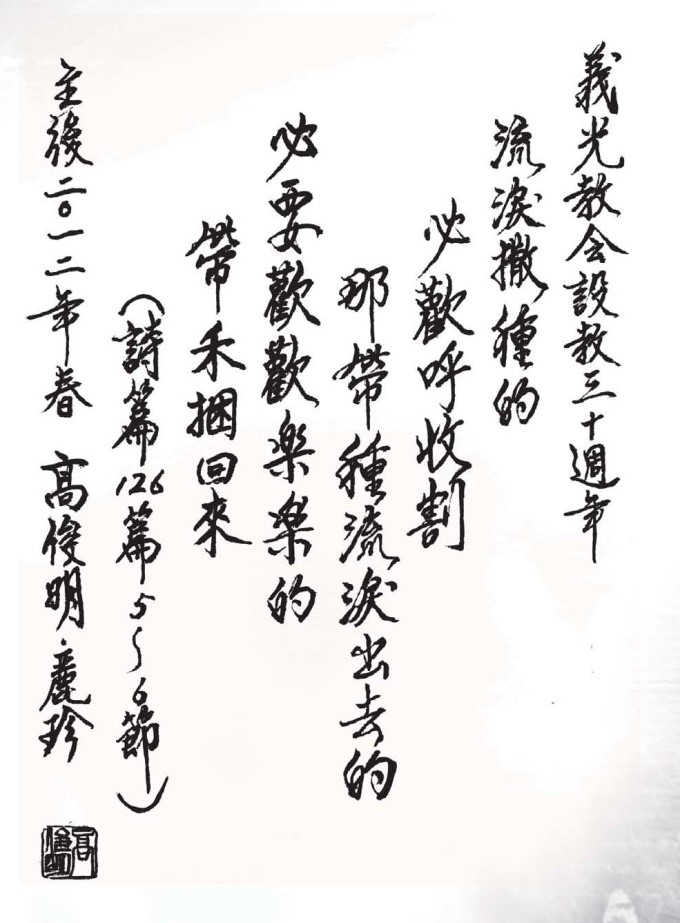 義光教会設教三十週年
流淚撒種的
必歡呼收割
那帶種流淚出去的
必要歡歡楽楽的
帶禾捆回來
（詩篇126篇5~6節）
主後二〇一二年春 高俊明·麗珍
高俊明